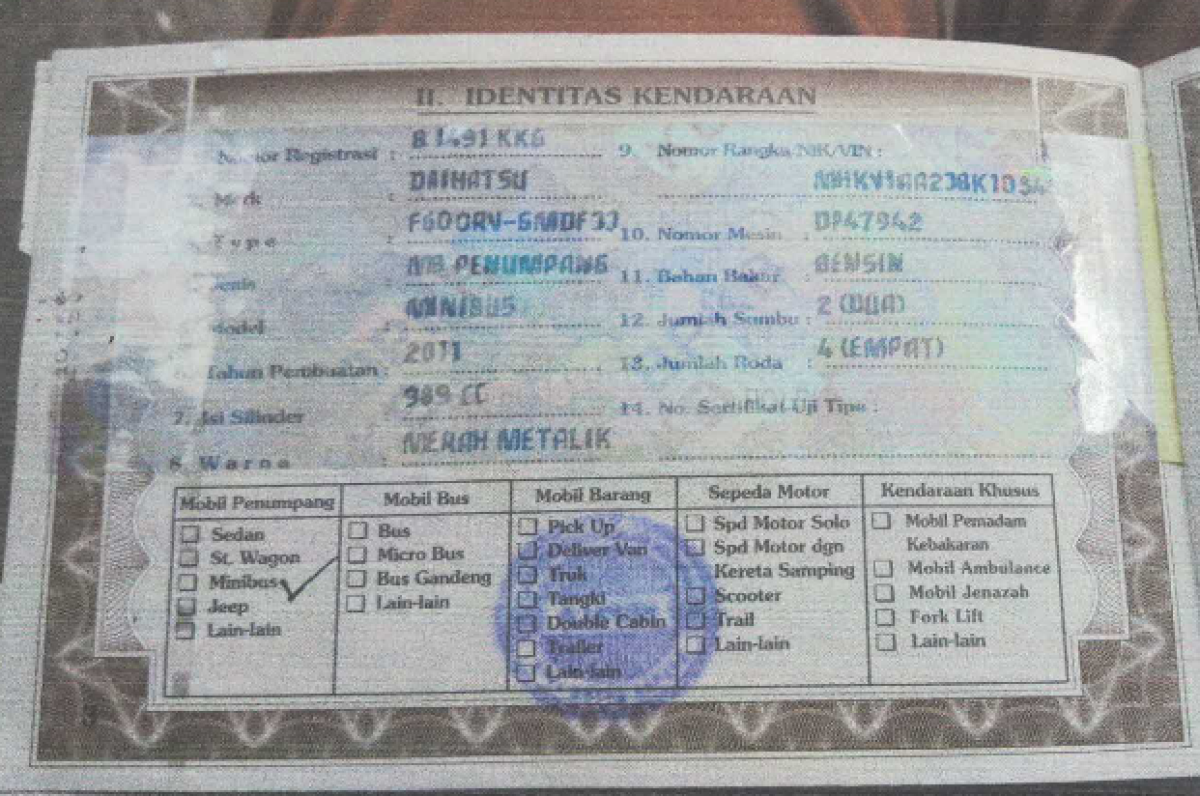 II. IDENTITAS KENDARAAN
Nomor Registrasi : B 1491 KKG
2. Merk : DAIHATSU
Type : F600RV-GMDFJJ
Jenis : MB. PENUMPANG
Model : MINIBUS
6. Tahun Pembuatan : 2011
7. Isi Silinder 989 CC
8. Warna MERAH METALIK
9. Nomor Rangka/NIK/VIN :
10. Nomor Mesin : DP47942
11. Bahan Bakar : BENSIN
12. Jumlah Sumbu : 2 (DUA)
13. Jumlah Roda : 4 (EMPAT)
14. No. Sertifikat Uji Tipe :
Mobil Penumpang
Sedan
St. Wagon
Minibus
Jeep
Lain-lain
Mobil Bus
Bus
Micro Bus
Bus Gandeng
Lain-lain
Mobil Barang
Pick Up
Deliver Van
Truk
Tangki
Double Cabin
Trailer
Lain-lain
Sepeda Motor
Spd Motor Solo
Spd Motor dgn
Kereta Samping
Scooter
Trail
Lain-lain
Kendaraan Khusus
Mobil Pemadam
Kebakaran
Mobil Ambulance
Mobil Jenazah
Fork Lift
Lain-lain